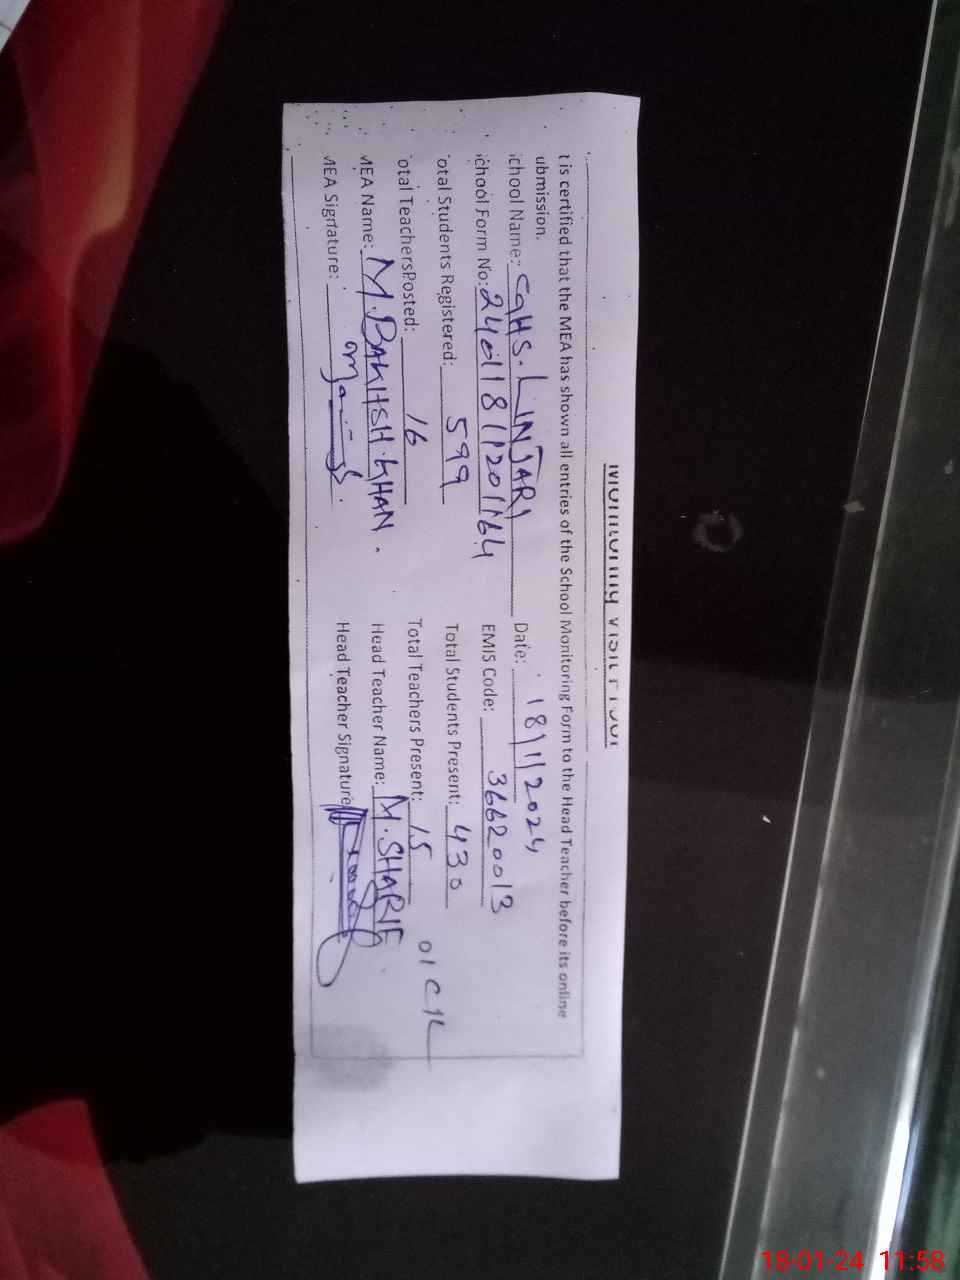 Monitoring Visit Proof
t is certified that the MEA has shown all entries of the School Monitoring Form to the Head Teacher before its online
ubmission.
chool Name: GHS. LINJARI Date: 18/1/2024
chool Form No: EMIS Code: 36620013
otal Students Registered: 599 Total Students Present: 430
otal TeachersPosted: 16 Total Teachers Present: 15 01 C/L
MEA Name: M. BAKHSH. KHAN. Head Teacher Name: M. SHARIF
MEA Signature: Head Teacher Signature
18-01-24 11:58